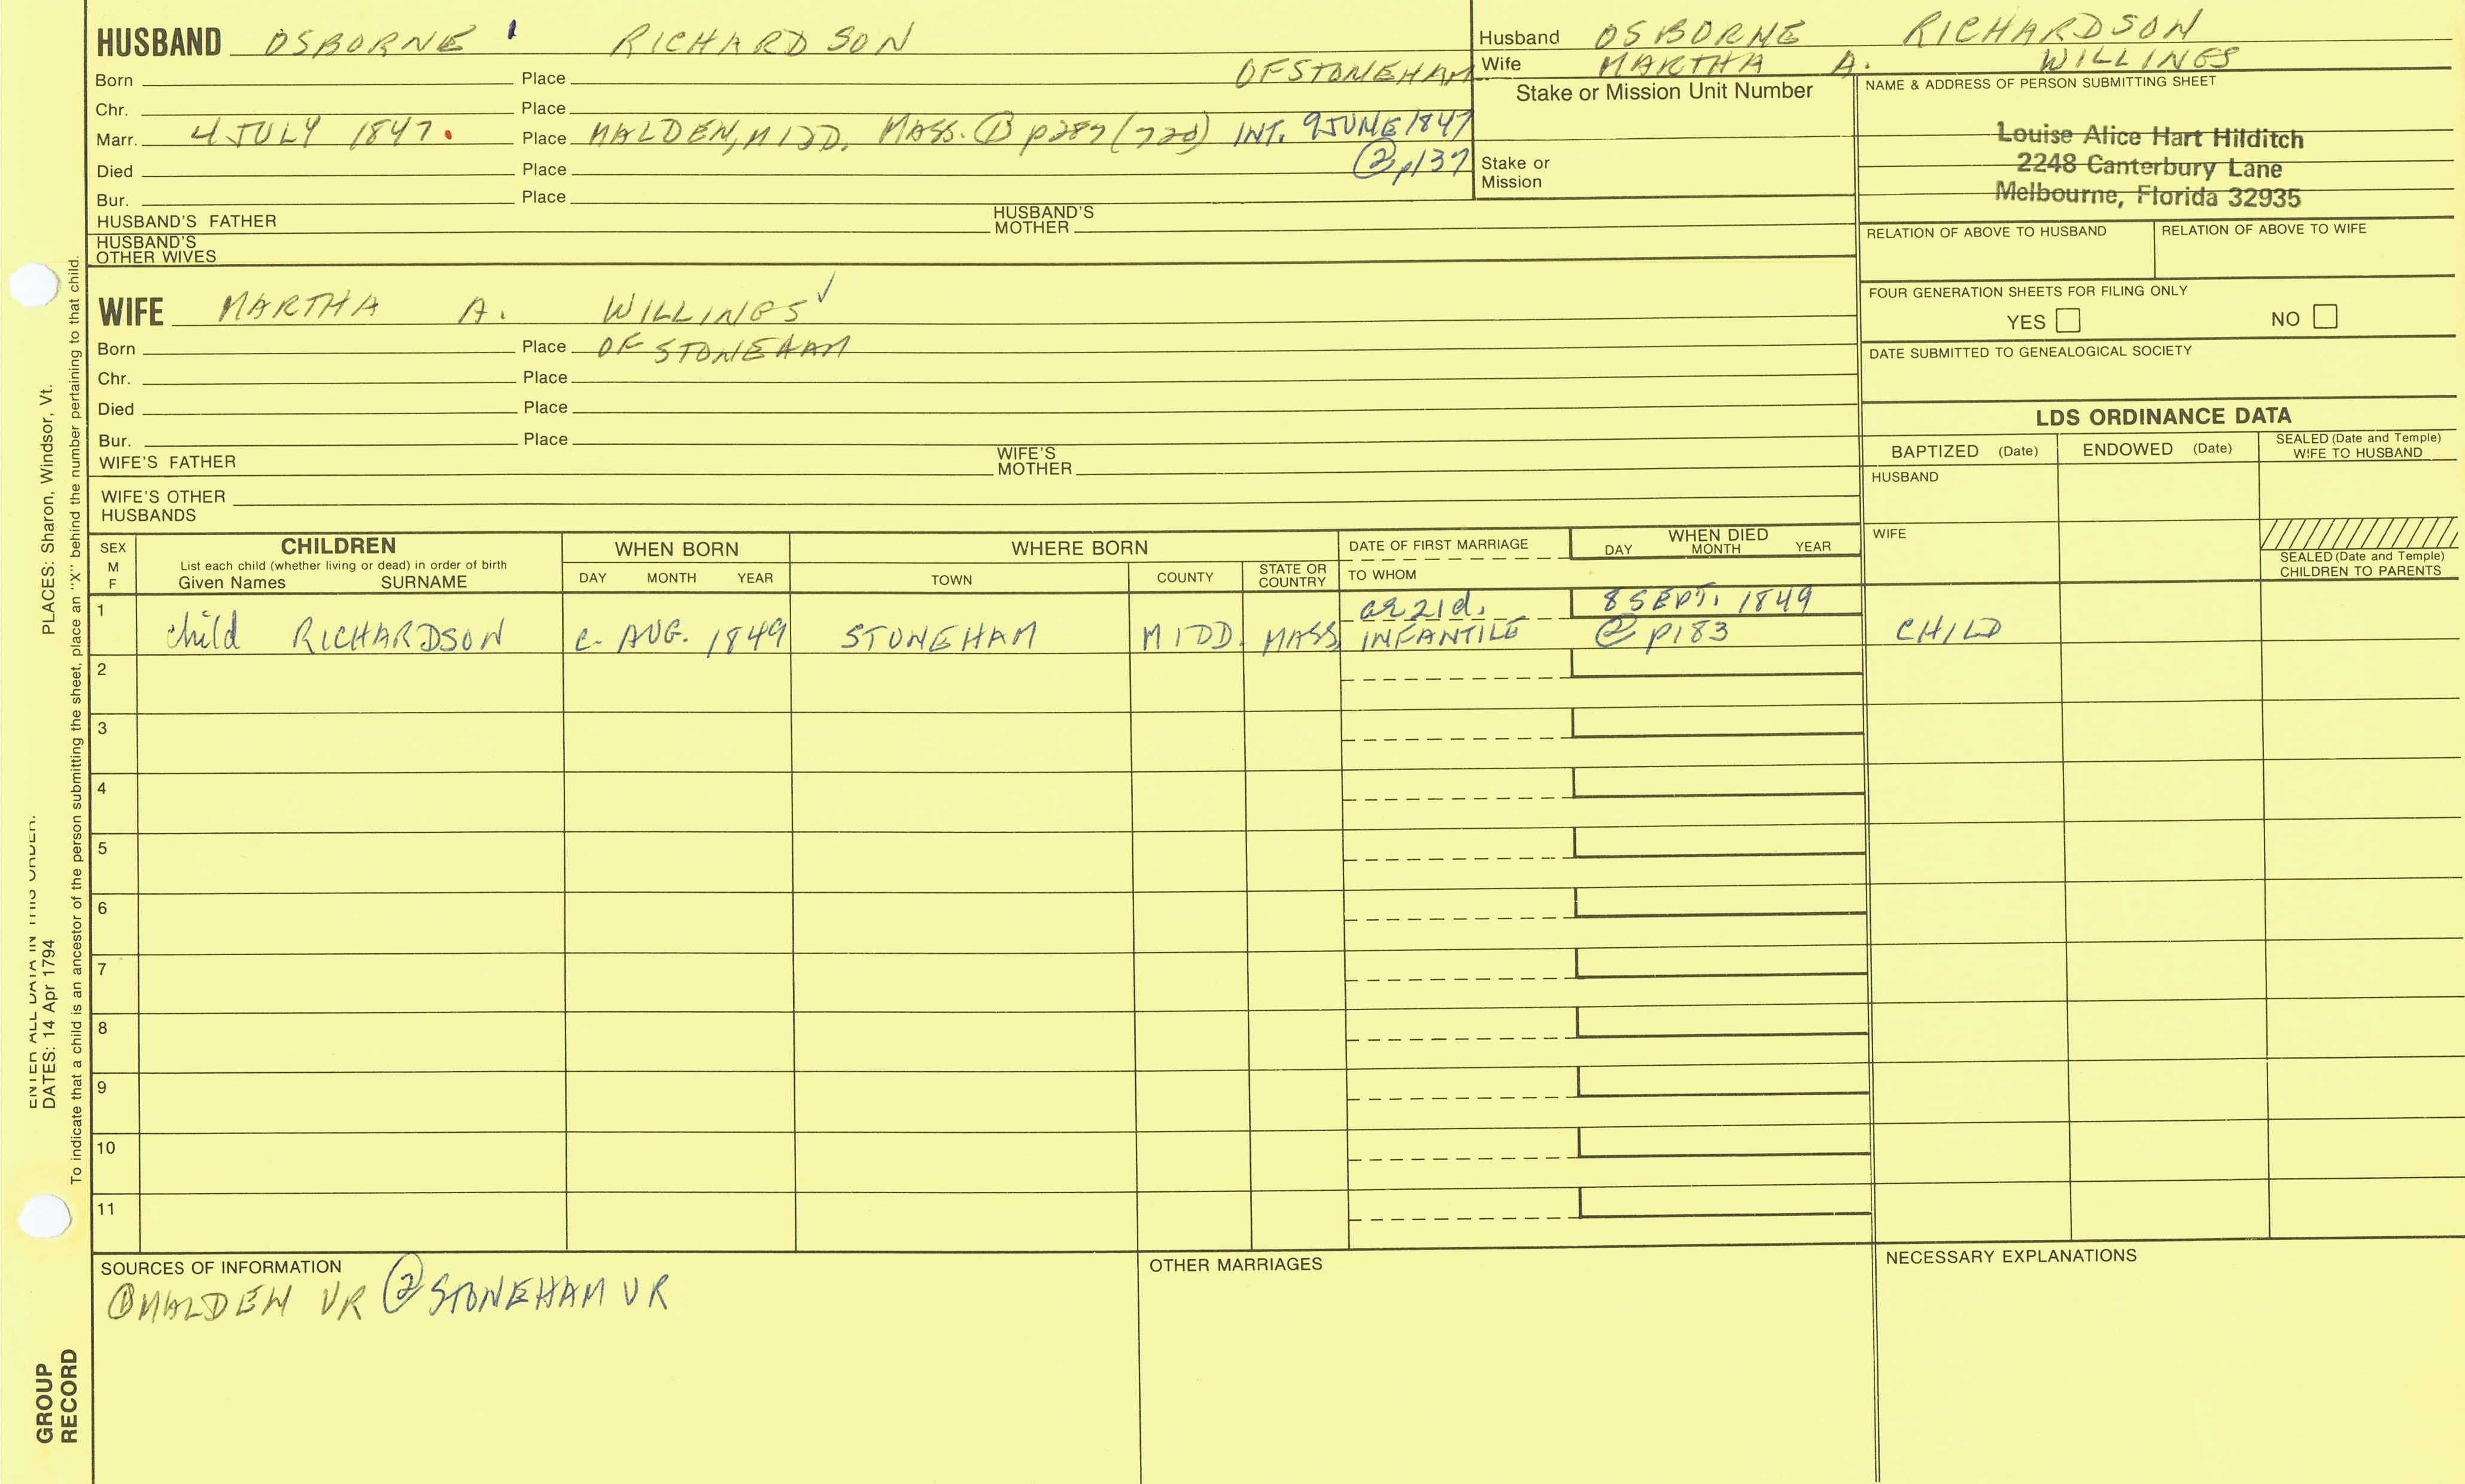 HUSBAND OSBORNE RICHARDSON
Husband OSBORNE RICHARDSON
Wife MARTHA A. WILLINGS
Born Place OF STONEHAM
Chr. Place
Marr. 4 JULY 1847. Place MALDEN, MIDD. MASS. ① p287 (72d) INT. 9 JUNE 1847
② p137
Died Place
Bur. Place
HUSBAND'S FATHER HUSBAND'S MOTHER
HUSBAND'S OTHER WIVES
Stake or Mission Unit Number
Stake or Mission
NAME & ADDRESS OF PERSON SUBMITTING SHEET
Louise Alice Hart Hilditch
2248 Canterbury Lane
Melbourne, Florida 32935
RELATION OF ABOVE TO HUSBAND RELATION OF ABOVE TO WIFE
FOUR GENERATION SHEETS FOR FILING ONLY
YES NO
DATE SUBMITTED TO GENEALOGICAL SOCIETY
WIFE MARTHA A. WILLINGS ✓
Born Place OF STONEHAM
Chr. Place
Died Place
Bur. Place
WIFE'S FATHER WIFE'S MOTHER
WIFE'S OTHER HUSBANDS
LDS ORDINANCE DATA
BAPTIZED (Date) ENDOWED (Date) SEALED (Date and Temple) WIFE TO HUSBAND
HUSBAND
WIFE
SEALED (Date and Temple) CHILDREN TO PARENTS
SEX M F
CHILDREN
List each child (whether living or dead) in order of birth
Given Names SURNAME
WHEN BORN
DAY MONTH YEAR
WHERE BORN
TOWN COUNTY STATE OR COUNTRY
DATE OF FIRST MARRIAGE
TO WHOM
WHEN DIED
DAY MONTH YEAR
1 child RICHARDSON c. AUG. 1849 STONEHAM MIDD. MASS
ae 21d. 8 SEPT. 1849
INFANTILE ② p183 CHILD
2
3
4
5
6
7
8
9
10
11
SOURCES OF INFORMATION
① MALDEN VR ② STONEHAM VR
OTHER MARRIAGES
NECESSARY EXPLANATIONS
ENTER ALL DATA IN THIS ORDER.
DATES: 14 Apr 1794 PLACES: Sharon, Windsor, Vt.
To indicate that a child is an ancestor of the person submitting the sheet, place an "X" behind the number pertaining to that child.
GROUP
RECORD